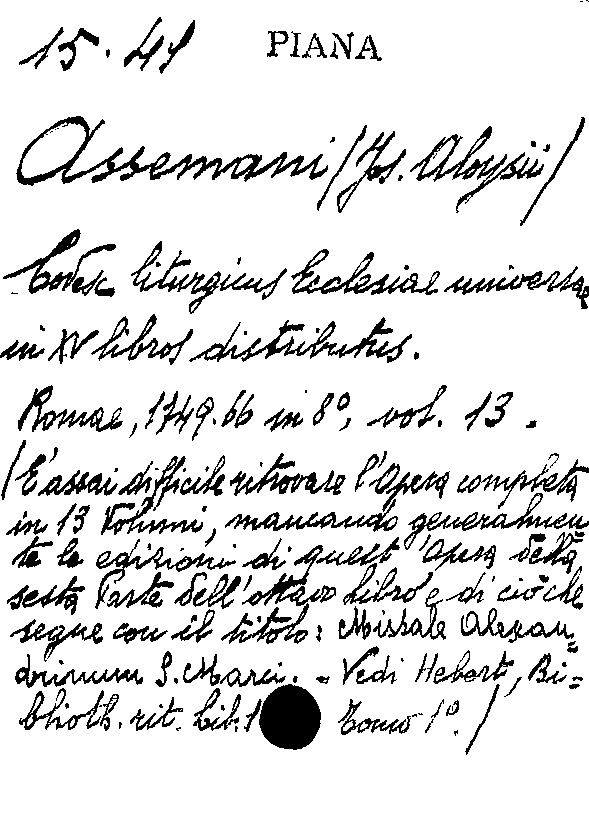 15. 41 PIANA
Assemani (Jos. Aloysii)
Codex liturgicus Ecclesiae universae
in XV libros distributus.
Romae, 1749.66 in 8º, vol. 13.
(E' assai difficile ritrovare l'Opera completa
in 13 Volumi, mancando generalmen=
te le edizioni di quest'Opera della
sesta Parte dell'ottavo Libro e di ciò che
segue con il titolo: Missale Alexan=
drinum S. Marci. - Vedi Hebert, Bi=
blioth. rit. Lib. 1 Tomo 1º.)